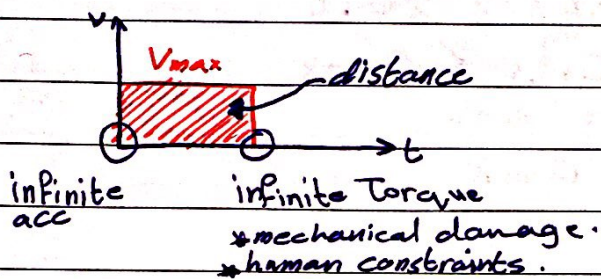 v
Vmax
distance
t
infinite acc
infinite Torque
* mechanical damage.
* human constraints.